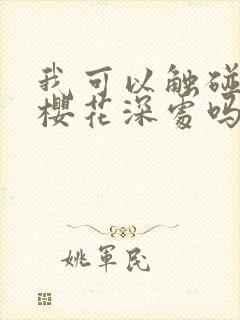 我可以触碰
樱花深处吗
姚军民